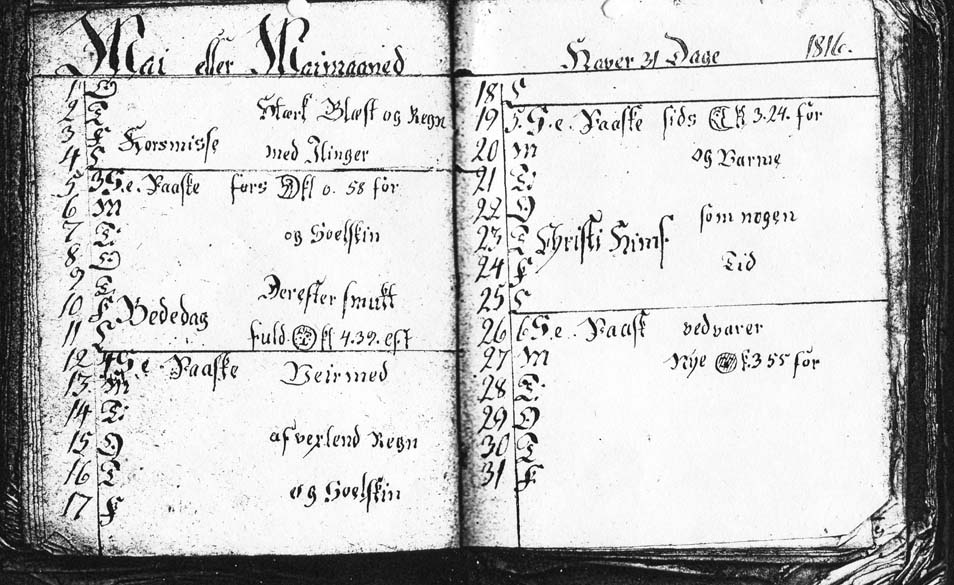 Mai eller Maimaaned
1 O
2 T Stærk Blæst og Regn
3 F Korsmisse
4 L med Ilinger
5 3 S. e. Paaske førs kl 0. 58 for
6 M
7 T. og Soelskin
8 O
9 T. Derefter smukt
10 F Bededag
11 L fuld kl 4.39. eft
12 4 S. e. Paaske Veir med
13 M
14 T.
15 O afvexlend Regn
16 T
17 F og Soelskin
Haver 31 Dage 1816.
18 L
19 5. S. e. Paaske sids K 3.24. for
20 M og Varme
21 T.
22 O som nogen
23 T Christi Hims.
24 F Tid
25 L
26 6 S. e. Paask vedvarer
27 M Nye k. 3 55 for
28 T.
29 O
30 T
31 F